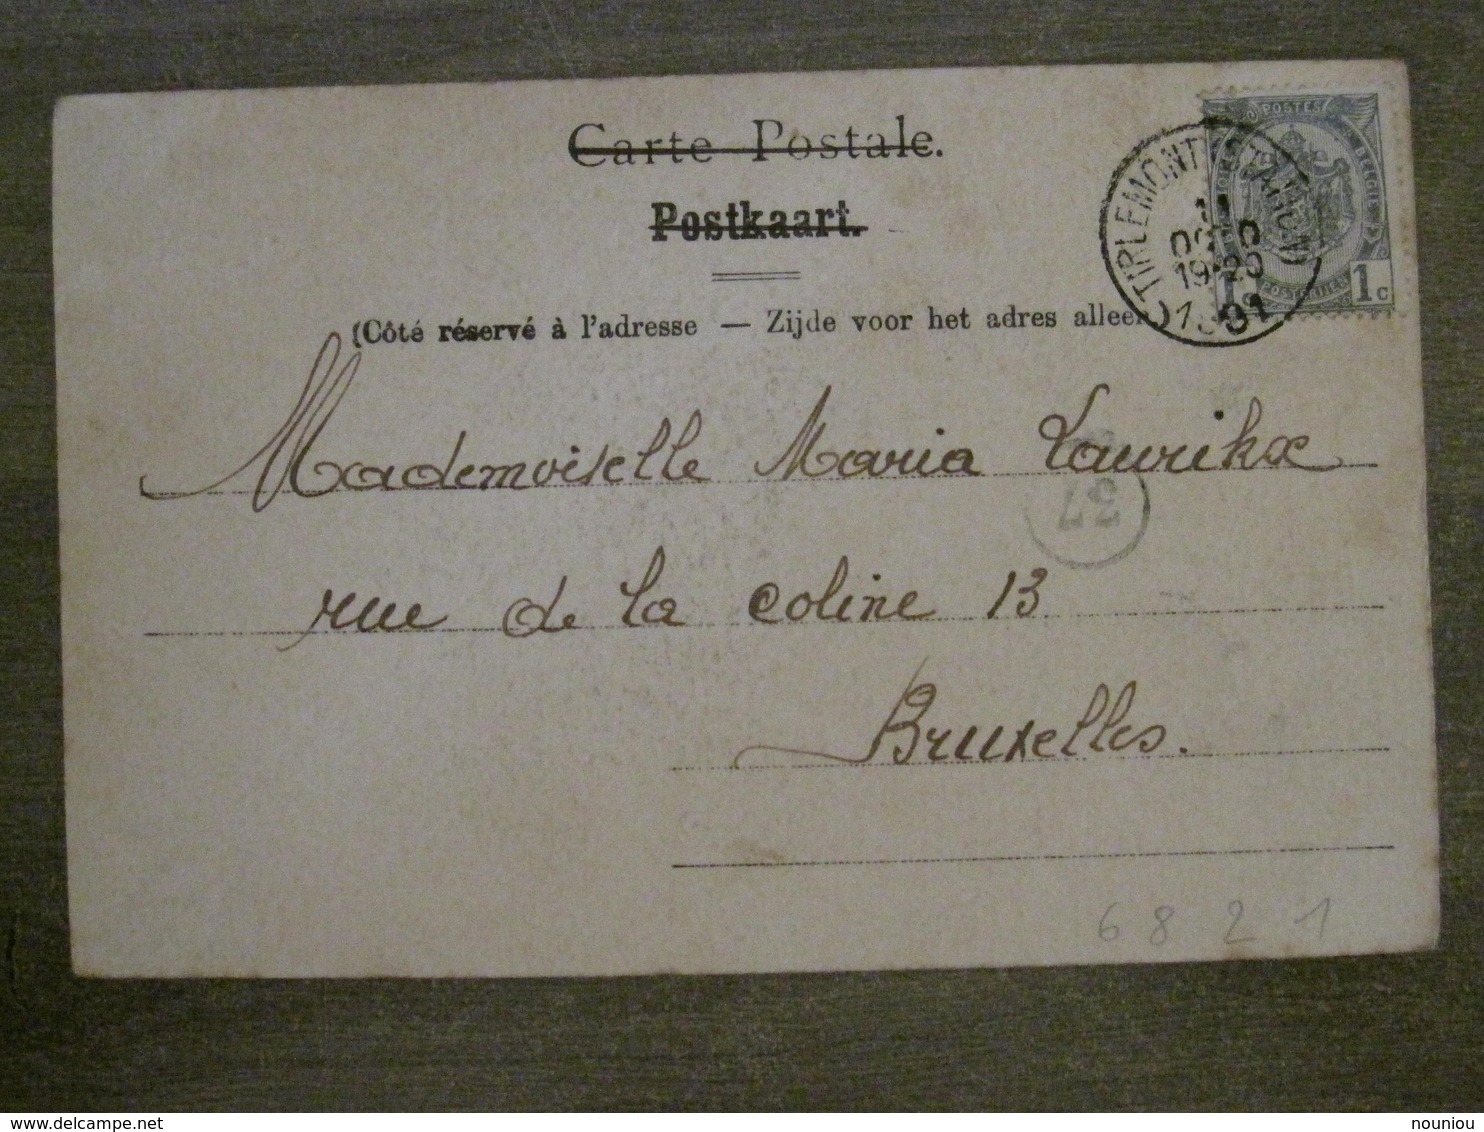 Carte Postale.
Postkaart.
(Côté réservé à l'adresse — Zijde voor het adres alleen)
POSTES
BELGIQUE
1c
(TIRLEMONT (STATION)
OCTO
19-20
1901
Mademoiselle Maria Laurikx
37
rue de la coline 13
Bruxelles.
6821
nouniou